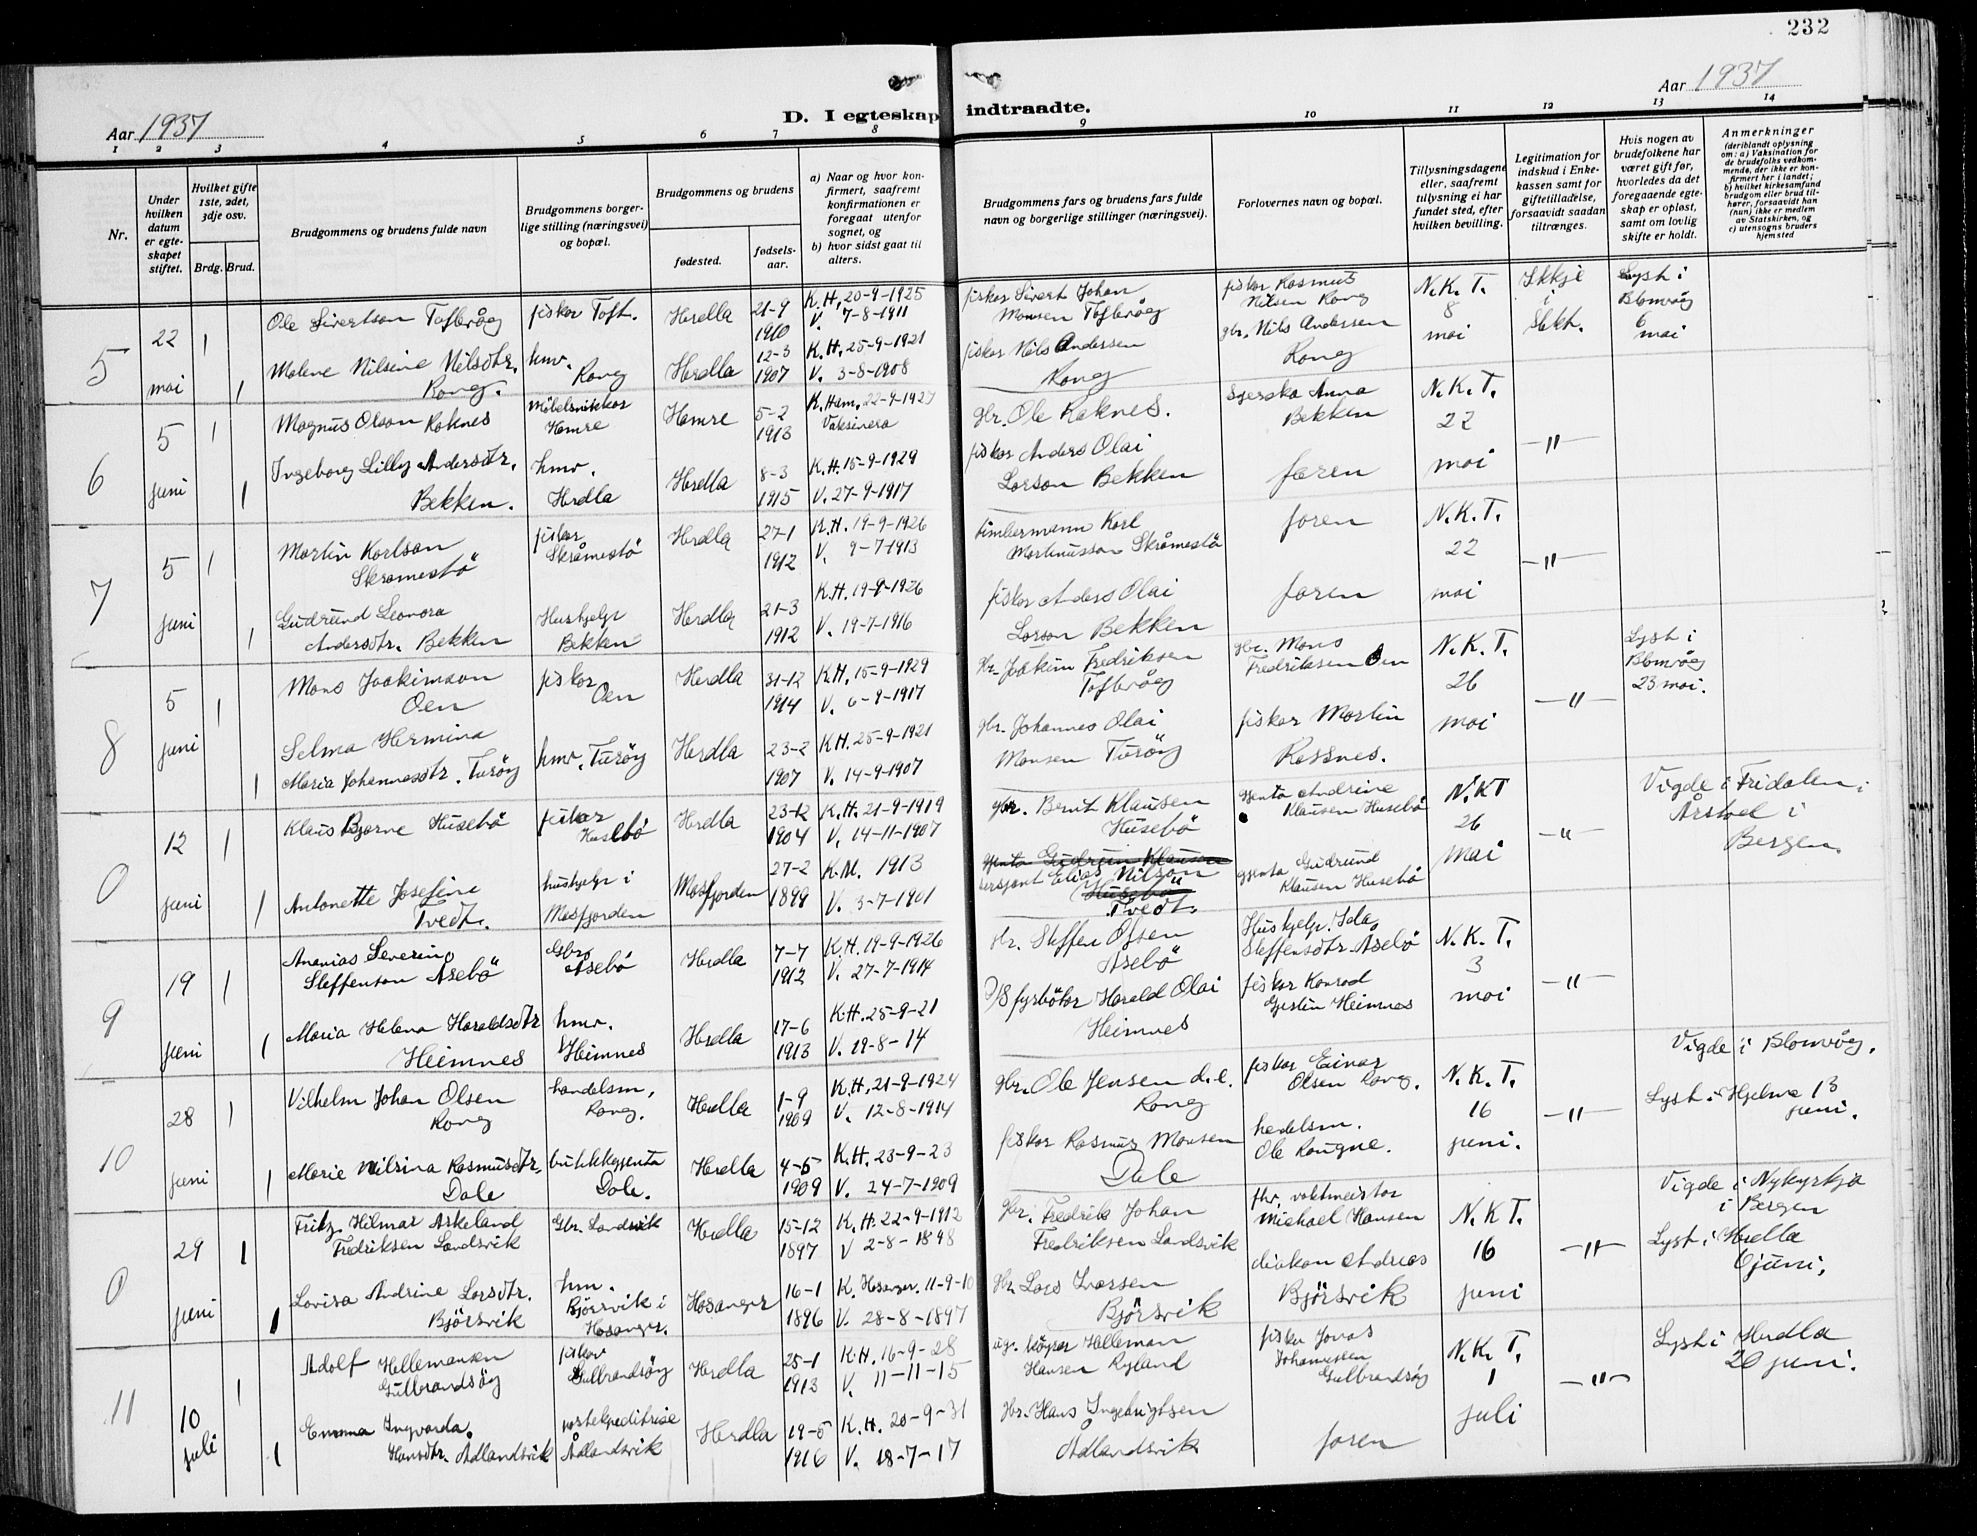 232
Aar 1937
D. I egteskap indtraadte.
Aar 1937
1 2 3 4 5 6 7 8 9 10 11 12 13 14
Nr.
Under hvilken datum er egteskapet stiftet.
Hvilket gifte 1ste, 2det, 3dje osv.
Brdg. Brud.
Brudgommens og brudens fulde navn
Brudgommens borgerlige stilling (næringsvei) og bopæl.
Brudgommens og brudens
fødested.
fødselsaar.
a) Naar og hvor konfirmert, saafremt konfirmationen er foregaat utenfor sognet, og
b) hvor sidst gaat til alters.
Brudgommens fars og brudens fars fulde navn og borgerlige stillinger (næringsvei).
Forlovernes navn og bopæl.
Tillysningsdagene eller, saafremt tillysning ei har fundet sted, efter hvilken bevilling.
Legitimation for indskud i Enkekassen samt for giftetilladelse, forsaavidt saadan tiltrænges.
Hvis nogen av brudefolkene har været gift før, hvorledes da det foregaaende egteskap er opløst, samt om lovlig skifte er holdt.
Anmerkninger
(deriblandt oplysning om: a) Vaksination for de brudefolks vedkommende, der ikke er konfirmert her i landet; b) hvilket kirkesamfund brudgom eller brud tilhører, forsaavidt han (hun) ikke er medlem av Statskirken, og c) utensogns bruders hjemsted
5
22 mai
1
Ole Sivertson Toftevåg
fisker Toft.
Herdla
21-9 1910
K.H. 20-9-1925
V. 7-8-1911
fisker Sivert Johan Monsen Toftevåg
fisker Rasmus Nilsen Rong
N.K.T. 8 mai
Lyst i Blomvåg 6 mai
1
Malene Nilsine Nilsdtr. Rong.
hmv. Rong
Herdla
12-3 1907
K.H. 25-9-1921
V. 3-8-1908
fisker Nils Andersen Rong
gbr. Nils Andersen Rong
6
5 juni
1
Magnus Olson Roknes
Møbelsnikkar Hamre
Hamre
5-2 1913
K. Ham. 22-9-1927
gbr. Ole Roknes.
Anna Bekken
N.K.T. 22 mai
-"-
1
Ingeborg Lilly Andersdtr. Bekken.
hmv. Herdla
Herdla
8-3 1915
K.H. 15-9-1929
V. 27-9-1917
fisker Anders Olai Larson Bekken
faren
7
5 juni
1
Martin Karlson Skråmestö
fisker Skråmestö
Herdla
27-1 1912
K.H. 19-9-1926
V. 9-7-1913
timbermann Karl Martinusson Skråmestö
faren
N.K.T. 22 mai
-"-
1
Gudrund Leonora Andersdtr. Bekken
Hushjelp Bekken
Herdla
21-3 1912
K.H. 19-9-1926
V. 19-7-1916
fisker Anders Olai Larson Bekken
faren
8
5 juni
1
Mons Joakimson Oen
fisker Oen
Herdla
31-12 1914
K.H. 15-9-1929
V. 6-9-1917
gbr. Joakim Fredriksen Toftevåg
gbr. Mons Fredriksen Oen
N.K.T. 26 mai
-"-
Lyst i Blomvåg 23 mai.
1
Selma Hermina Maria Johannesdtr. Turöy
hmv. Turöy
Herdla
23-2 1907
K.H. 25-9-1921
V. 14-9-1907
gbr. Johannes Olai Monsen Turöy
fisker Martin Rossnes.
0
12 juni
1
Klaus Bjarne Husebö
fisker Husebö
Herdla
23-12 1904
K.H. 21-9-1919
V. 14-11-1907
gbr. Bernt Klausen Husebö
gjenta Andrine Klausen Husebö
N.K.T 26 Mai
-"-
Vigde i Fridalen i Årstad i Bergen.
1
Antonette Josefine Tvedt.
hushjelp i Masfjorden
Masfjorden
27-2 1899
K.M. 1913
V. 3-7-1901
gjenta Gudrun Klausen Husebö
sersjant Elias Nilson Tvedt.
gjenta Gudrund Klausen Husebö
9
19 juni
1
Ananias Severin Steffenson Åsebö
Gbr. Åsebö
Herdla
7-7 1912
K.H. 19-9-1926
V. 27-7-1914
gbr. Steffen Olsen Åsebö
Hushjelp. Ida Steffensdtr. Åsebö
N.K.T. 3 mai
-"-
1
Maria Helena Haraldsdtr Heimnes
hmv. Heimnes
Herdla
17-6 1913
K.H. 25-9-21
V. 19-8-14
D/S fyrböter Harald Olai Heimnes
fisker Konrad Gjertin Heimnes
10
28 juni
1
Vilhelm Johan Olsen Rong
handelsm, Rong.
Herdla
1-9 1909
K.H. 21-9-1924
V. 12-8-1914
gbr. Ole Jensen d.e. Rong
fisker Einar Olsen Rong.
N.K.T. 16 juni.
-"-
Vigde i Blomvåg.
Lyst i Hjelma 13 juni.
1
Marie Nilsina Rasmusdtr. Dale
butikkgjenta Dale.
Herdla
4-5 1909
K.H. 23-9-23
V. 24-7-1909
fisker Rasmus Monsen Dale
Ole Rougne.
0
29 juni
1
Fritz Hilmar Askeland Fredriksen Landsvik
Gbr. Landsvik
Herdla
15-12 1897
K.H. 22-9-1912
V 2-8-1898
gbr. Fredrik Johan Fredriksen Landsvik
fhv. vaktmeister Michael Hansen
N.K.T. 16 juni
-"-
Vigde i Nykyrkja i Bergen
Lyst i Herdla
1
Lovisa Andrine Larsdtr. Bjørsvik
hm. Bjørsvik i Hosanger.
Hosanger
16-1 1896
K. Hosanger. 11-9-10
V. 28-8-1897
gbr. Lars Larsen Bjørsvik
diakon Andreas Bjørsvik
11
10 juli
1
Adolf Hellemansen Gulbrandsöy
fisker Gulbrandsöy
Herdla
25-1 1913
K.H. 16-9-28
V. 11-11-15
Helleman Hansen Ryland
fisker Jonas Johannesen Gulbrandsöy
N.K.T. 1 juli
-"-
Lyst i Herdla 20 juni.
1
Emma Ingvarda Hansdtr. Ådlandsvik
postekspeditrise Ådlandsvik
Herdla
19-5 1916
K.H. 20-9-31
V. 18-7-17
gbr. Hans Ingebrigtsen Ådlandsvik
faren